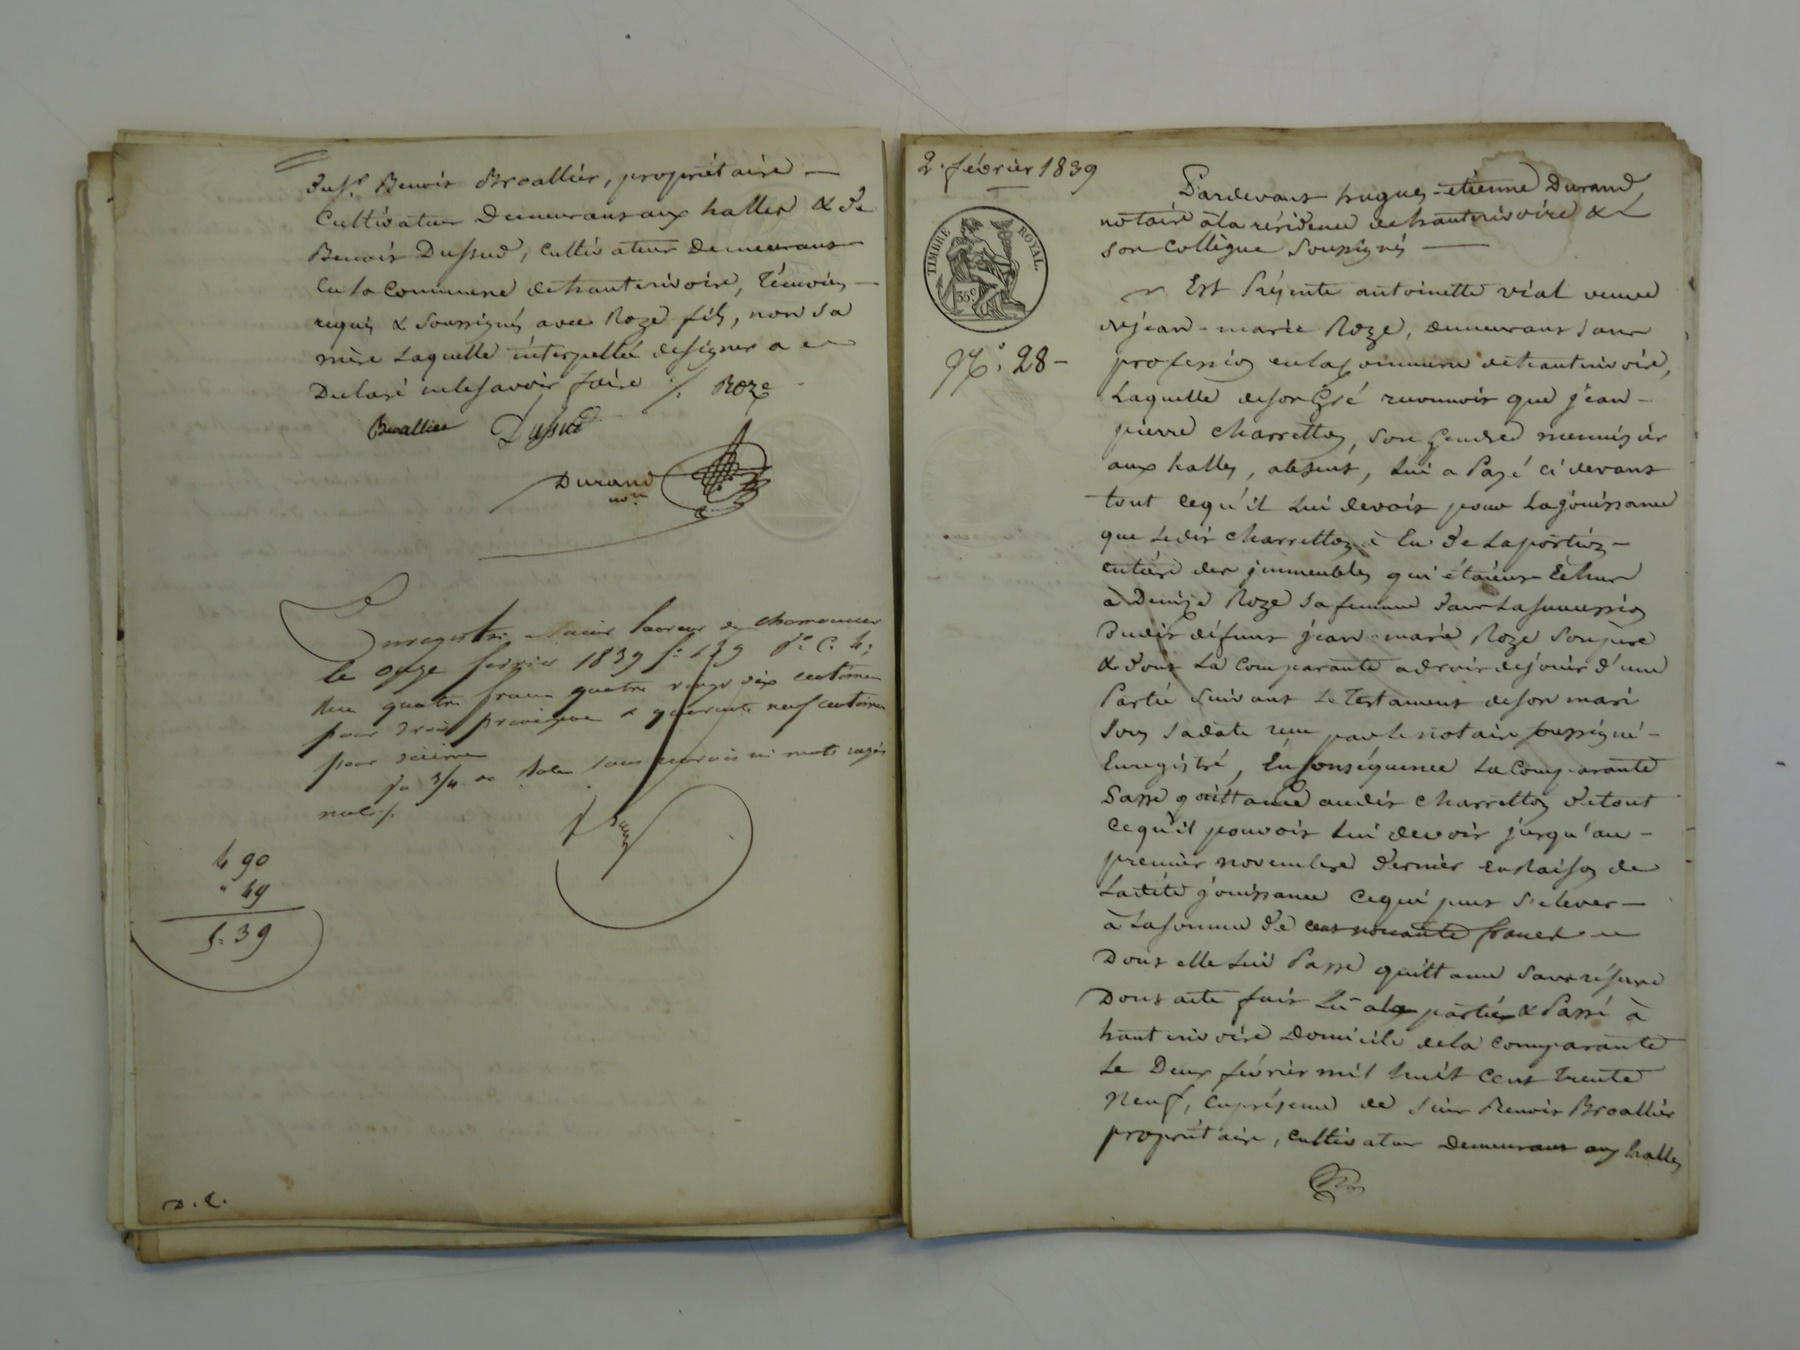 du sr Benoit Broallier, propriétaire —
Cultivateur Demeurant aux halles & de
Benoit Dussud, cultivateur demeurant
en la Commune de hauterivoire, témoins —
requis & soussignés avec Roze fils, non sa
mère Laquelle interpellée de signer a
Déclaré ne le savoir faire ./. Roze
Broallier Dussud
Durand
nore
Enregistré à Saint Laurent de chamousset
le onze fevrier 1839 fo 139 Vo C. 4:
Reçu quatre francs quatre vingt dix centimes
pour droit principal & quarante neuf centimes
pour décime
3/4 de Role sans renvois ni mots rayés
nuls ./.
4 90
" 49
5. 39
D. C.
2. février 1839
TIMBRE ROYAL.
35 c
No. 28 —
Pardevant hugues-étienne Durand,
notaire à la résidence de hauterivoire &
son Collègue Soussignés —
Est Présente antoinette vial veuve
de jean-marie Roze, demeurant sans
profession en la Commune de hauterivoire,
Laquelle de son Gré reconnoit que jean-
pierre Charretton, son Gendre menuisier
aux halles, absent, Lui a Payé ci devant
tout ce qu'il Lui devoit pour La jouissance
que Ledit Charretton à Eu de La portion —
entière des immeubles qui étaient Echus
à Denize Roze sa femme dans La succession
Dudit défunt jean-marie Roze son père
& dont La Comparante a droit de jouir d'une
Partie Suivant Le Testament de son mari
Sous sa date reçu par le notaire soussigné —
Enregistré, En Conséquence La Comparante
Passe quittance audit Charretton de tout
ce qu'il pouvoit Lui devoir jusqu'au —
premier novembre dernier en Raison de
Ladite jouissance ce qui peut s'élever —
à La somme de cent nonante francs
Dont elle Lui Passe quittance sans réserve
Dont acte fait Lu à la partie & Passé à
haute rivoire Domicile de la Comparante
Le Deux février mil huit cent trente
Neuf, en présence de sieur Benoit Broallier
propriétaire, cultivateur demeurant aux halles